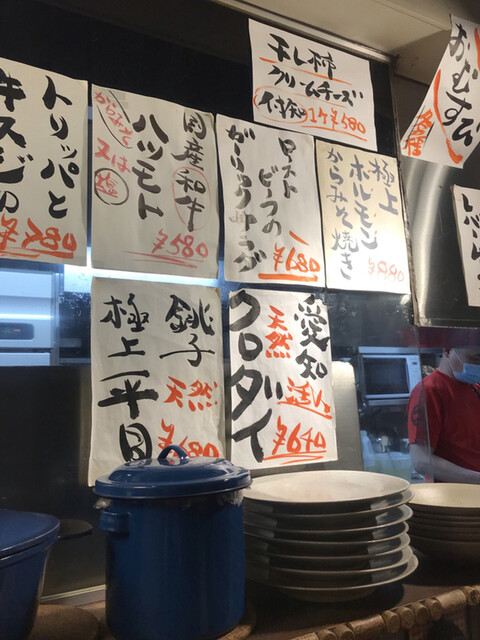 干し柿
クリームチーズ
1ケ ¥580
おむすび
トリッパと
牛スジの
¥580
国産和牛
ハツモト
からみそ
又は
塩
¥580
ロースト
ビーフの
ガーリックサラダ
¥680
極上
ホルモン
からみそ焼き
¥990
銚子
天然
極上平目
¥680
愛知
天然
活〆
クロダイ
¥640